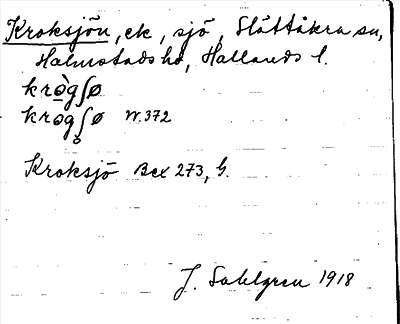 Kroksjön, ek, sjö, Slättåkra sn,
Halmstads hd, Hallands l.
krògʃø
krògʃø W.372
Kroksjö Bex 273, G.
J. Sahlgren 1918